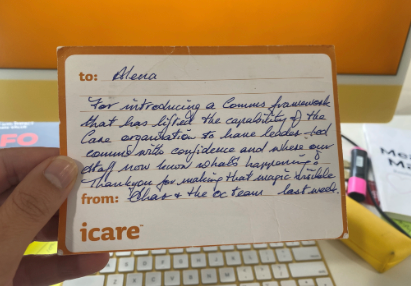 to: Alena
For introducing a Comms framework
that has lifted the capability of the
Case organisation to have leader-led
comms with confidence and where our
staff now know what's happening &
Thankyou for making that magic
from: Chas & the cx team last week.
icare™
FO
Me
M